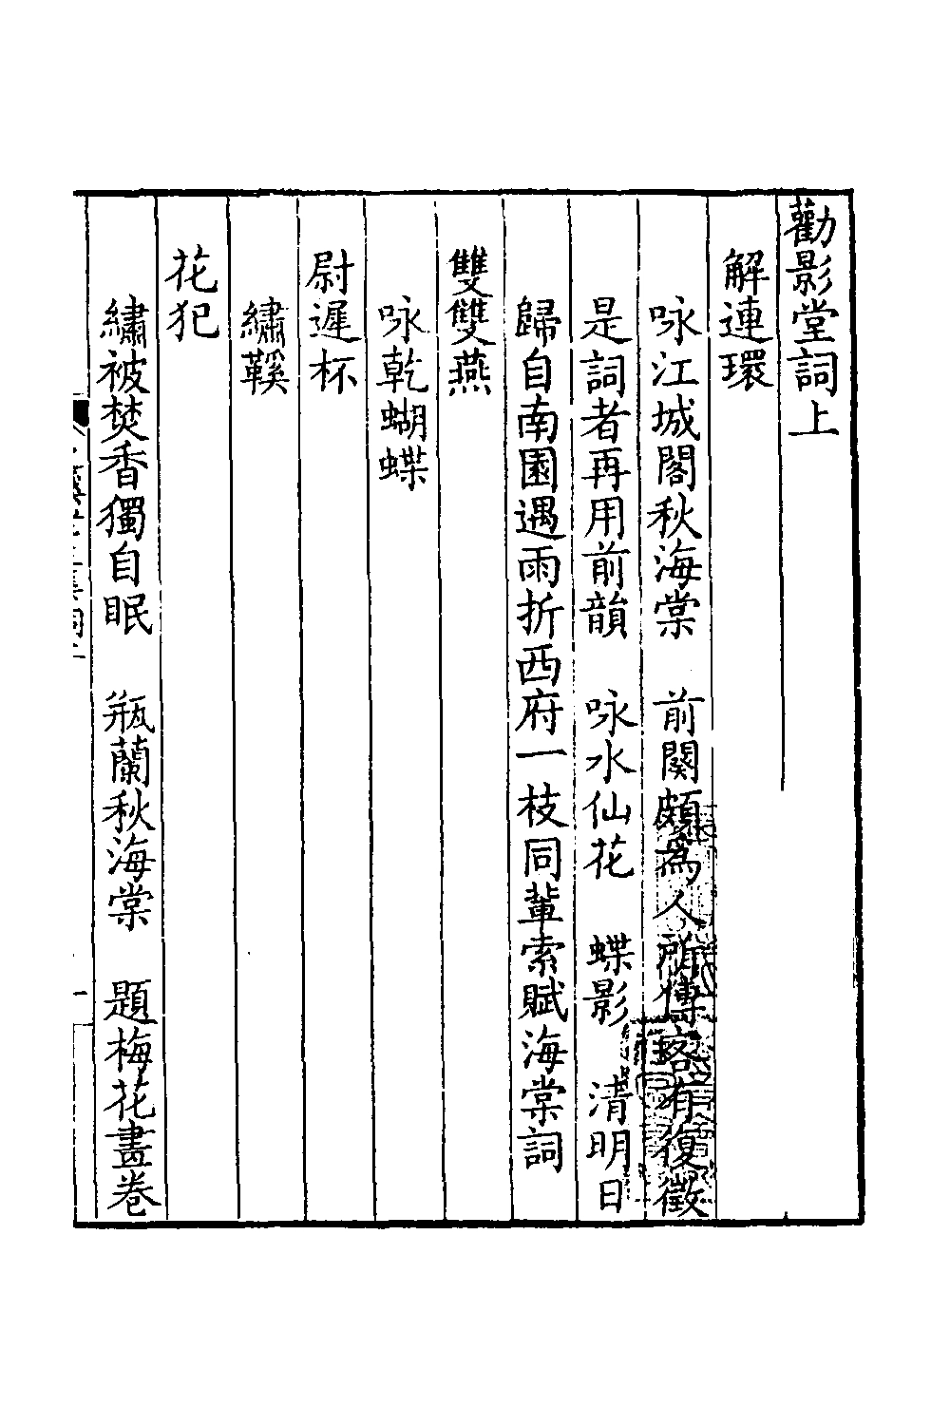 勸影堂詞上
解連環
咏江城閣秋海棠　前闋頗為人所傳客有復徵
是詞者再用前韻　咏水仙花　蝶影　清明日
歸自南園遇雨折西府一枝同輩索賦海棠詞
雙雙燕
咏乾蝴蝶
尉遲杯
繡鞵
花犯
繡被焚香獨自眠　瓶蘭秋海棠　題梅花畫卷